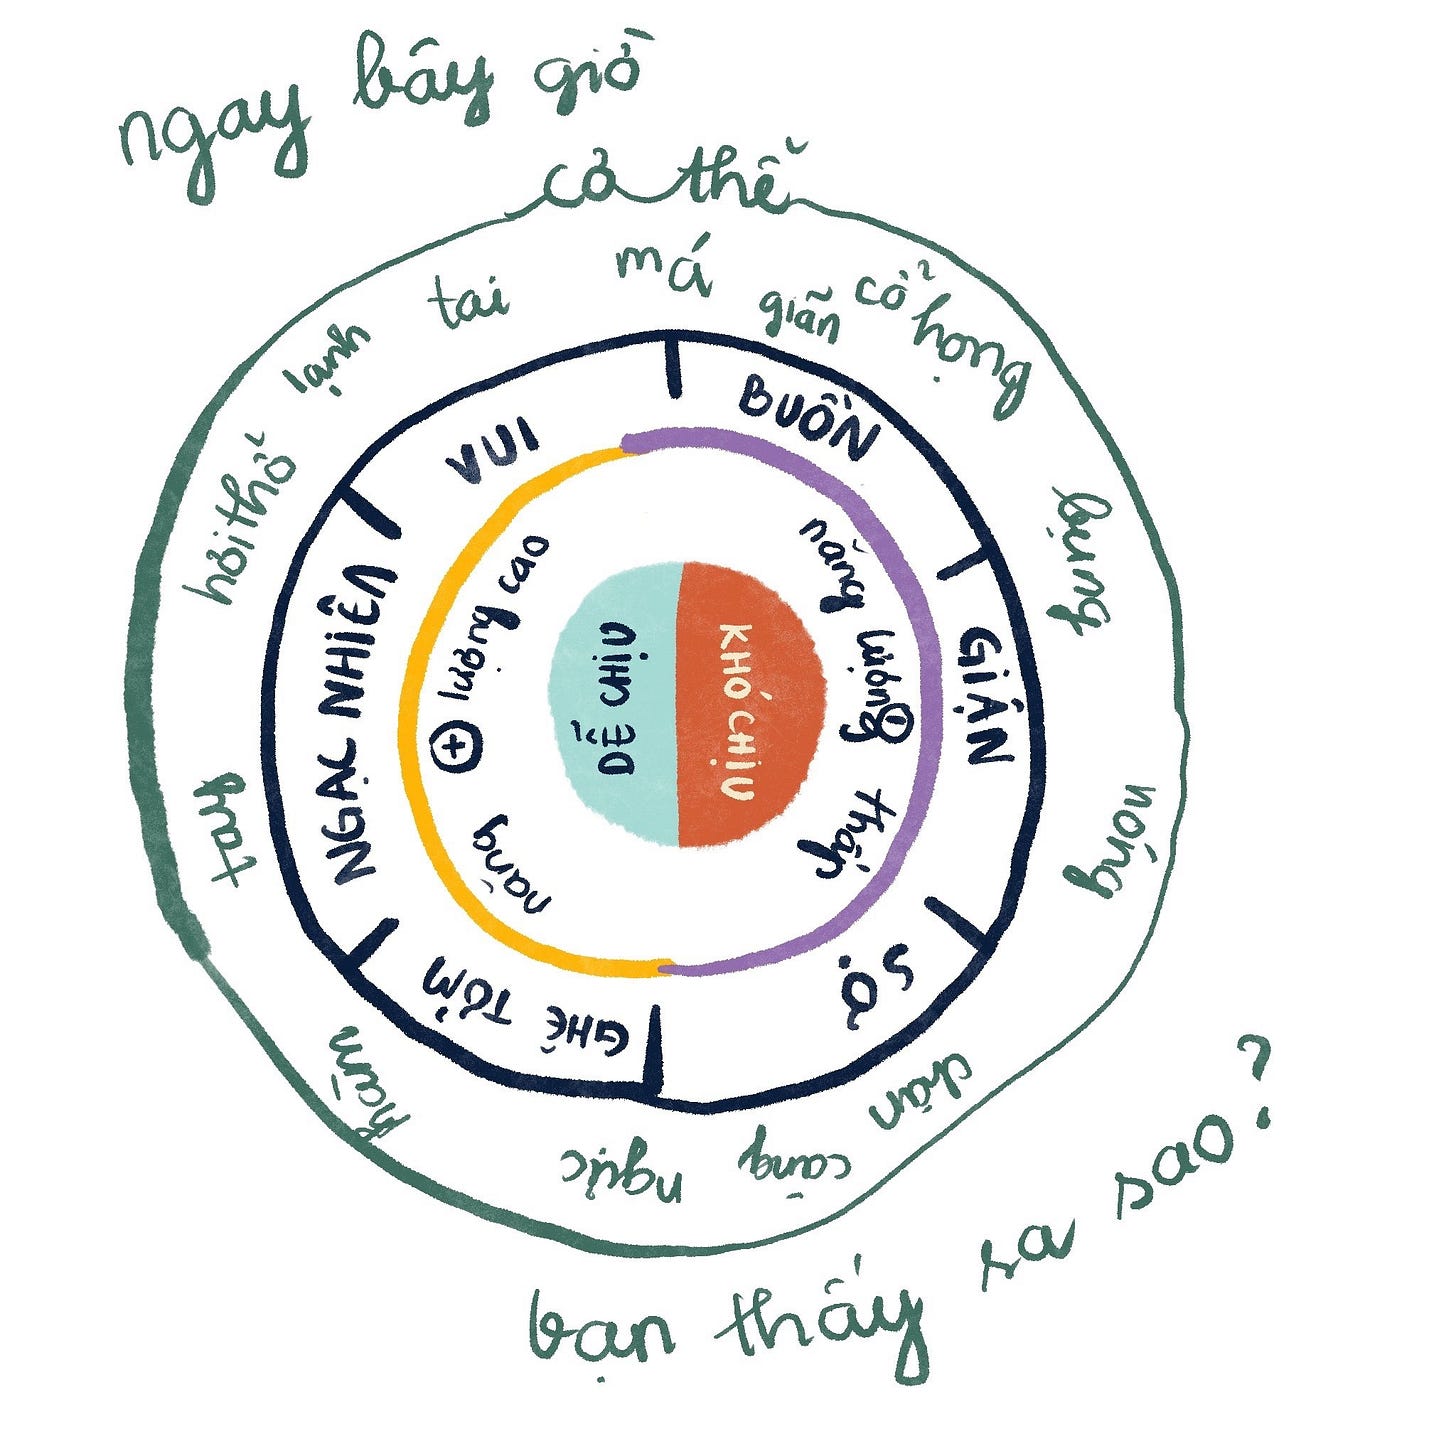 ngay bây giờ
cơ thể
má
giãn
cổ họng
bụng
nóng
chân
căng
ngực
hàm
tay
hơi thở
lạnh
tai
VUI
BUỒN
GIẬN
SỢ
GHÊ TỞM
NGẠC NHIÊN
năng lượng cao
năng lượng thấp
DỄ CHỊU
KHÓ CHỊU
bạn thấy ra sao?